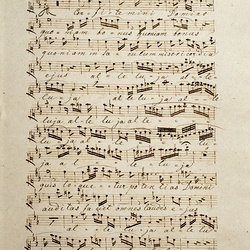 Con fi te mini Domino
quo niam bo nus quo niam bonus
quoniam in sæ culum misericordia
ejus al le lu ja al le
lu ja al le lu ja al le
luja al le lu ja al le
lu ja
ja al le lu ja
quis lo que tur po ten ti as Domini
auditas fa ciet omnes laudes e
al le lu ja al le